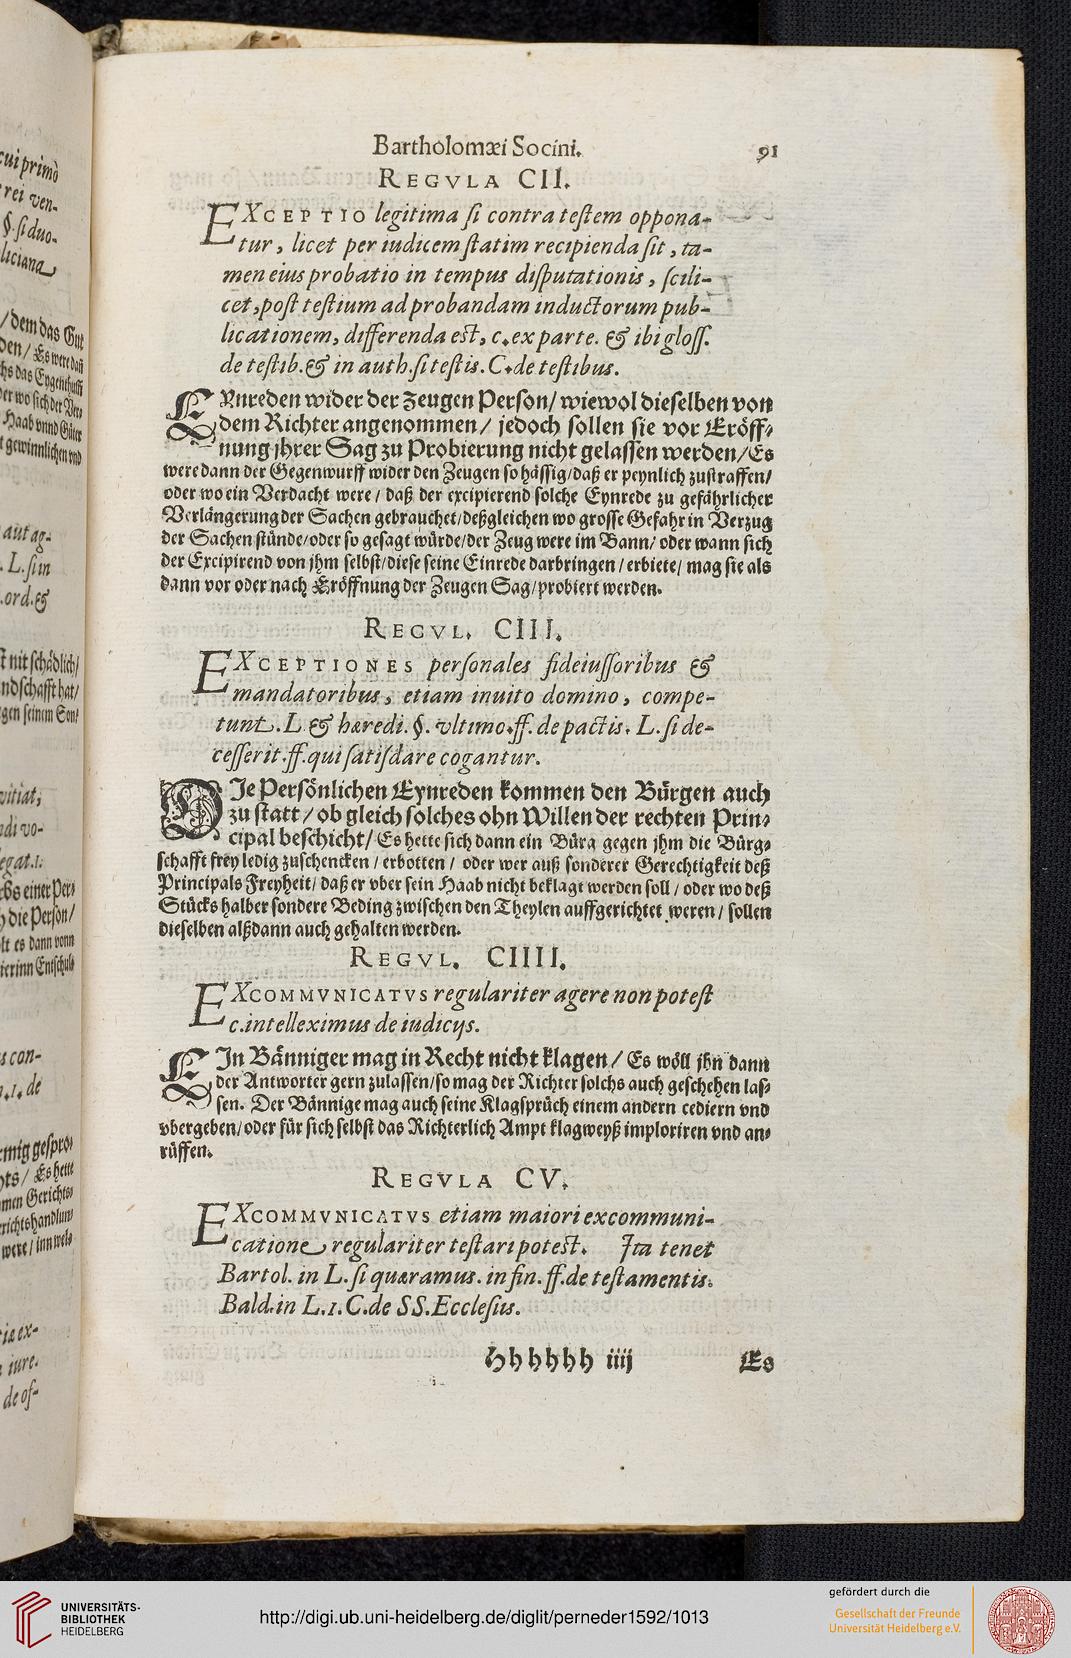 Bartholomæi Socini. 91
REGVLA CII.
EXCEPTIO legitima si contra testem oppona-
tur, licet per iudicem statim recipienda sit, ta-
men eius probatio in tempus disputationis, scili-
cet, post testium ad probandam inductorum pub-
licationem, differenda est, c. ex parte. & ibi gloss.
de testib. & in auth. si testis. C. de testibus.
EYnreden wider der Zeugen Person/ wiewol dieselben von
dem Richter angenommen/ jedoch sollen sie vor Eröff-
nung jhrer Sag zu Probierung nicht gelassen werden/ Es
were dann der Gegenwurff wider den Zeugen so hässig/ daß er peynlich zustraffen/
oder wo ein Verdacht were/ daß der excipierend solche Eynrede zu gefährlicher
Verlängerung der Sachen gebrauchet/ deßgleichen wo grosse Gefahr in Verzug
der Sachen stünde/ oder so gesagt würde/ der Zeug were im Bann/ oder wann sich
der Excipirend von jhm selbst/ diese seine Einrede darbringen/ erbiete/ mag sie als
dann vor oder nach Eröffnung der Zeugen Sag/ probiert werden.
REGVL. CIII.
EXCEPTIONES personales fideiussoribus &
mandatoribus, etiam inuito domino, compe-
tunt. L & hæredi. §. vltimo. ff. de pactis. L. si de-
cesserit. ff. qui satisdare cogantur.
DIe Persönlichen Eynreden kommen den Bürgen auch
zu statt/ ob gleich solches ohn Willen der rechten Prin-
cipal beschicht/ Es hette sich dann ein Bürg gegen jhm die Bürg-
schafft frey ledig zuschencken/ erbotten/ oder wer auß sonderer Gerechtigkeit deß
Principals Freyheit/ daß er vber sein Haab nicht beklagt werden soll/ oder wo deß
Stücks halber sondere Beding zwischen den Theylen auffgerichtet weren/ sollen
dieselben alßdann auch gehalten werden.
REGVL. CIIII.
EXCOMMVNICATVS regulariter agere non potest
c. intelleximus de iudicijs.
EIn Bänniger mag in Recht nicht klagen/ Es wöll jhn dann
der Antworter gern zulassen/ so mag der Richter solchs auch geschehen las-
sen. Der Bännige mag auch seine Klagsprüch einem andern cediern vnd
vbergeben/ oder für sich selbst das Richterlich Ampt klagweyß imploriren vnd an-
rüffen.
REGVLA CV.
EXCOMMVNICATVS etiam maiori excommuni-
catione regulariter testari potest. Ita tenet
Bartol. in L. si quæramus. in fin. ff. de testamentis.
Bald. in L. 1. C. de SS. Ecclesiis.
Hhhhhh iiij Es
UNIVERSITÄTS-
BIBLIOTHEK
HEIDELBERG
http://digi.ub.uni-heidelberg.de/diglit/perneder1592/1013
gefördert durch die
Gesellschaft der Freunde
Universität Heidelberg e.V.